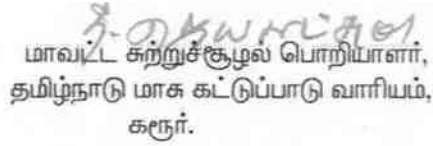 மாவட்ட சுற்றுச்சூழல் பொறியாளர்,
தமிழ்நாடு மாசு கட்டுப்பாடு வாரியம்,
கரூர்.